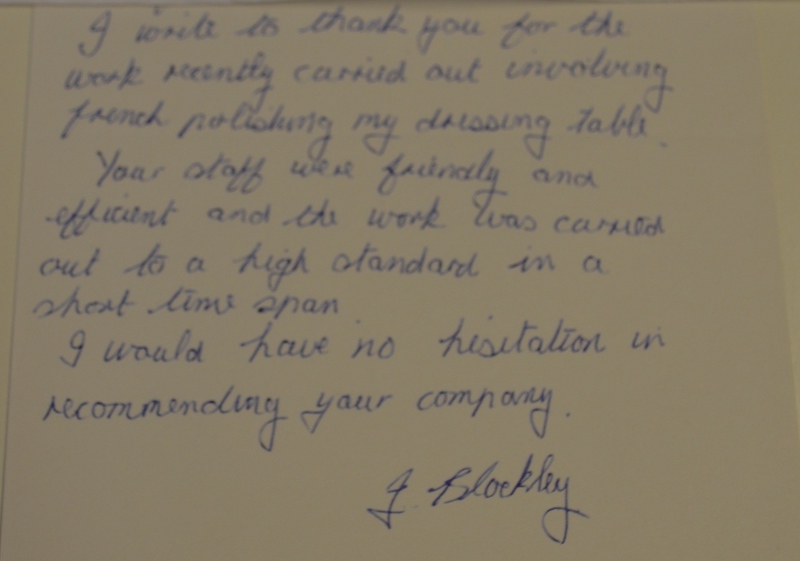 I write to thank you for the
work recently carried out involving
french polishing my dressing table.
Your staff were friendly and
efficient and the work was carried
out to a high standard in a
short time span
I would have no hesitation in
recommending your company.
J. Blockley